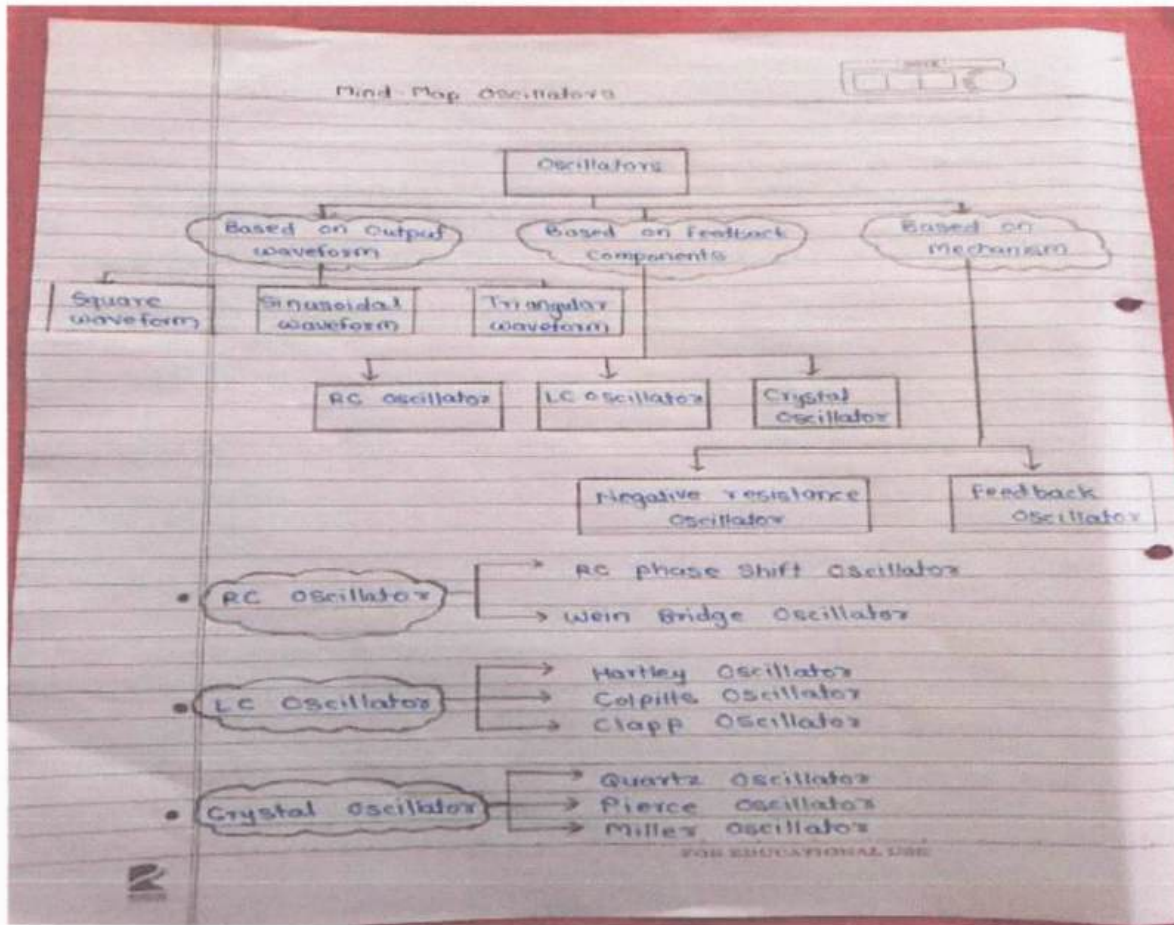 Mind Map Oscillators
Oscillators
Based on Output
waveform
Based on Feedback
Components
Based on
Mechanism
Square
waveform
Sinusoidal
waveform
Triangular
waveform
RC Oscillator
LC Oscillator
Crystal
Oscillator
Negative resistance
Oscillator
Feedback
Oscillator
RC Oscillator
RC Phase Shift Oscillator
Wein Bridge Oscillator
LC Oscillator
Hartley Oscillator
Colpills Oscillator
Clapp Oscillator
Crystal Oscillator
Quartz Oscillator
Pierce Oscillator
Miller Oscillator
FOR EDUCATIONAL USE